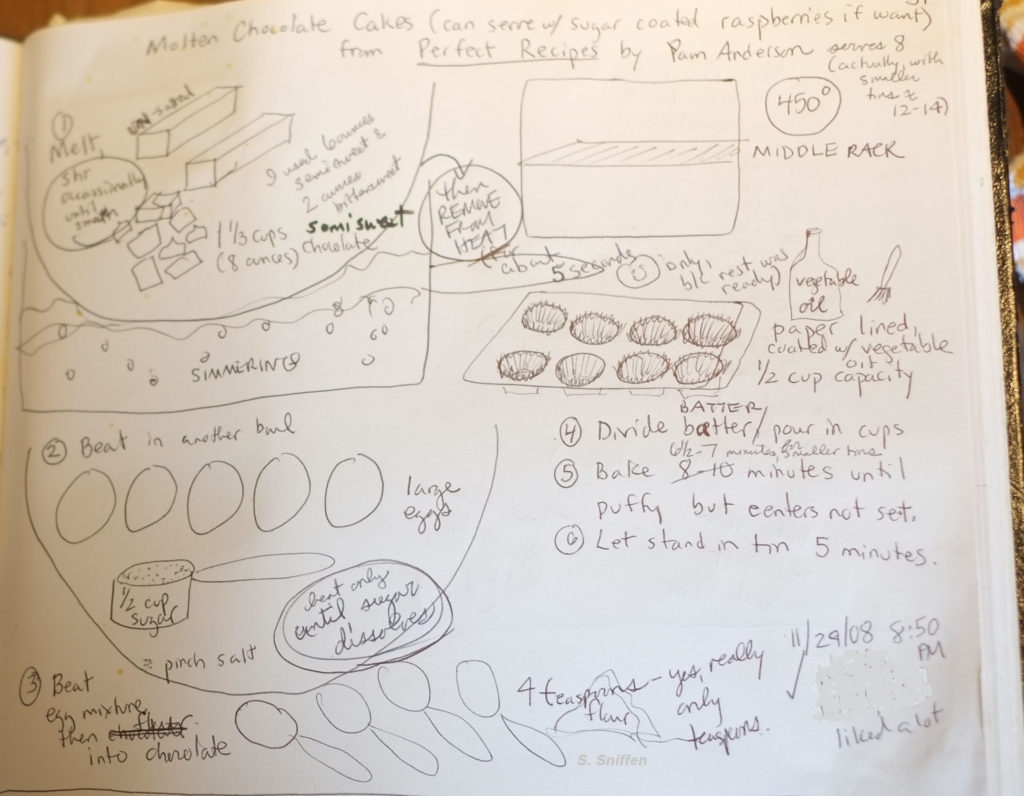 Molten Chocolate Cakes (can serve w/ sugar coated raspberries if want)
from Perfect Recipes by Pam Anderson
serves 8
(actually, with
smaller
tins
12-14)
450°
MIDDLE RACK
①
Melt,
stir
occassionally
until
smooth
un-salted
I used 6 ounces
semisweet &
2 ounces
bittersweet
1 1/3 cups semisweet
(8 ounces) chocolate
then
REMOVE
FROM
HEAT
(for about 5 seconds
only,
b/c rest was
ready)
SIMMERING
vegetable
oil
paper lined,
coated w/ vegetable
oil
1/2 cup capacity
② Beat in another bowl
large
eggs
1/2 cup
sugar
beat only
until sugar
dissolves
pinch salt
③ Beat
egg mixture,
then flour
into chocolate
4 teaspoons - yes, really
flour
only
teaspoons.
BATTER
④ Divide batter/pour in cups
6 1/2-7 minutes for smaller tins
⑤ Bake 8-10 minutes until
puffy but centers not set.
⑥ Let stand in tin 5 minutes.
11/29/08 8:50
PM
liked a lot
S. Sniffen